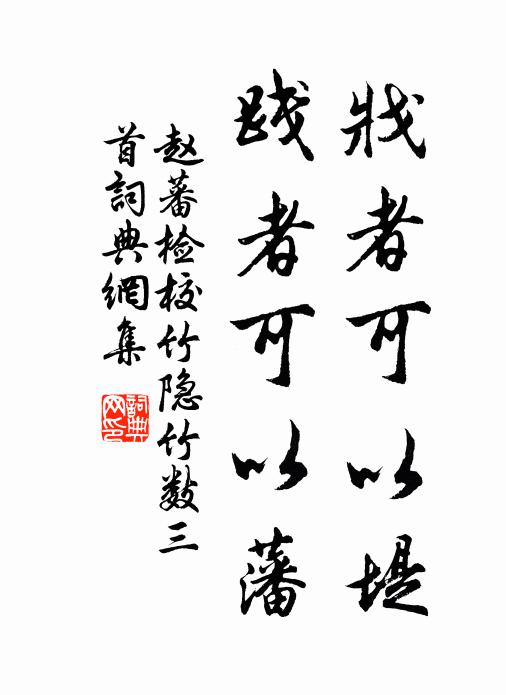 戕者可以堤
践者可以藩
赵蕃检校竹隐竹数三
首词典網集
詞典网印